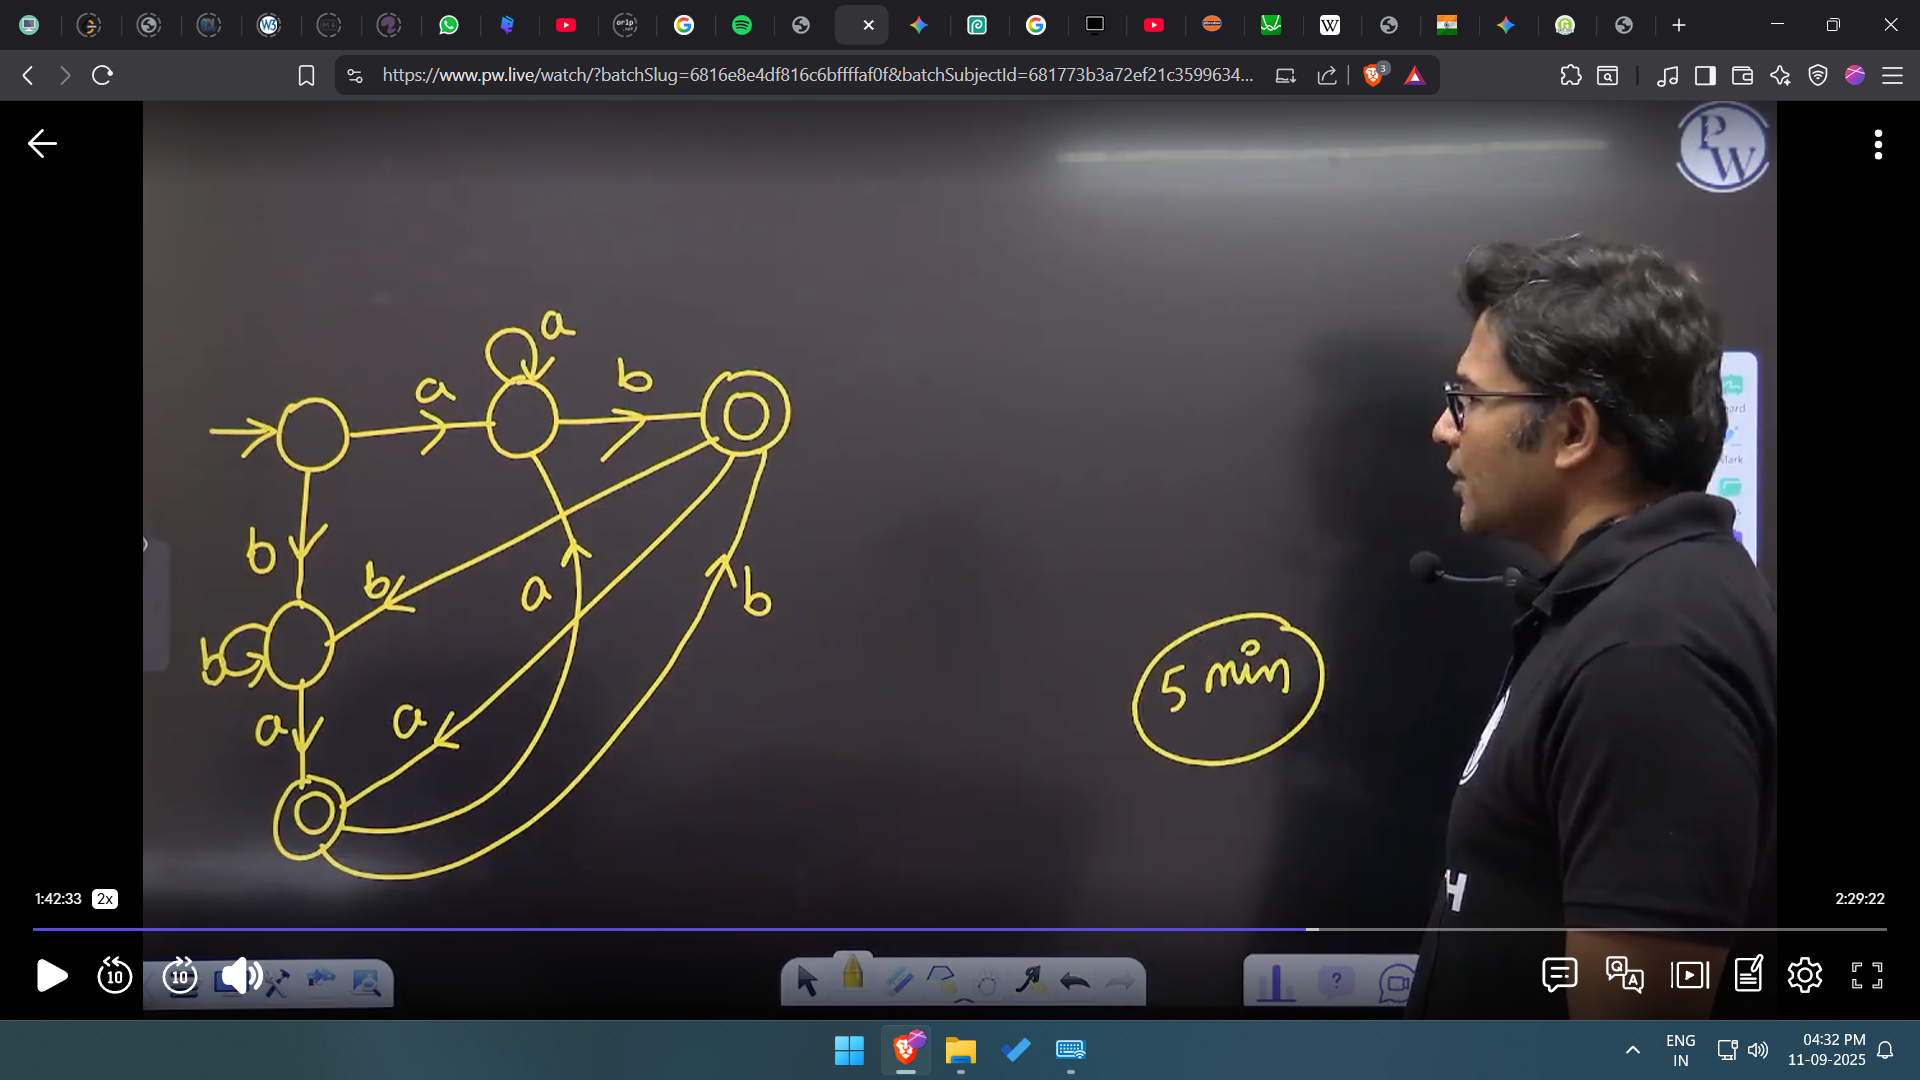 https://www.pw.live/watch/?batchSlug=6816e8e4df816c6bffffaf0f&batchSubjectId=681773b3a72ef21c3599634...
3
PW
a
a
b
b
b
a
b
b
a
a
5 min
H
1:42:33
2x
2:29:22
10
10
ENG
IN
04:32 PM
11-09-2025